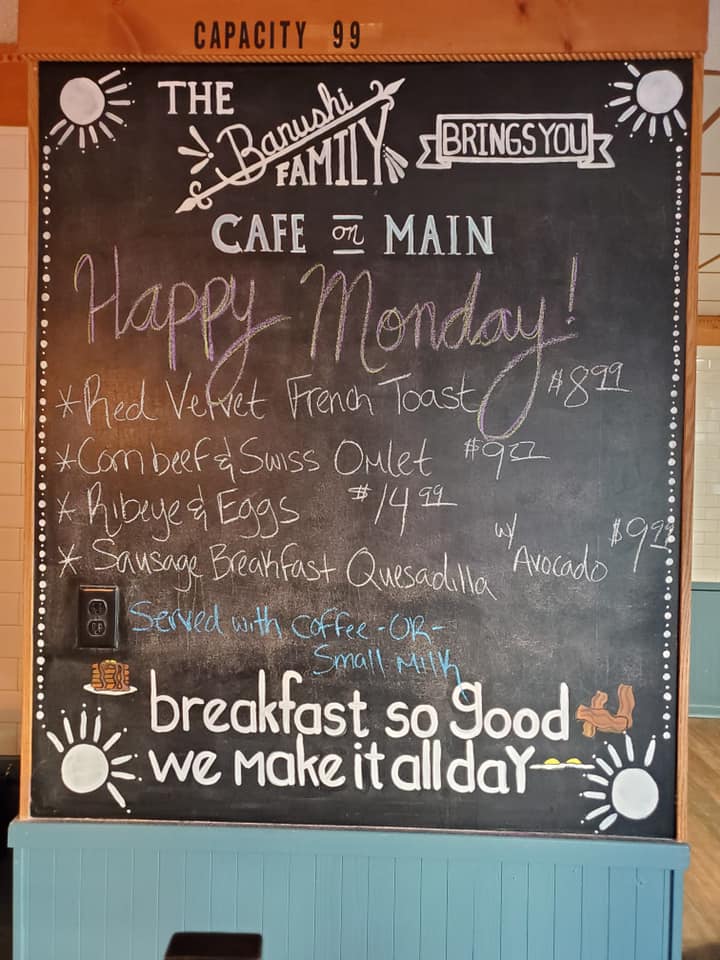 CAPACITY 99
THE Banushi FAMILY BRINGS YOU
CAFE on MAIN
Happy Monday!
*Red Velvet French Toast $8.99
*Cornbeef & Swiss Omlet
* Ribeye & Eggs $14.99
* Sausage Breakfast Quesadilla w/ Avocado $9.99
Served with coffee -OR-
Small Milk
breakfast so good
we make it all day